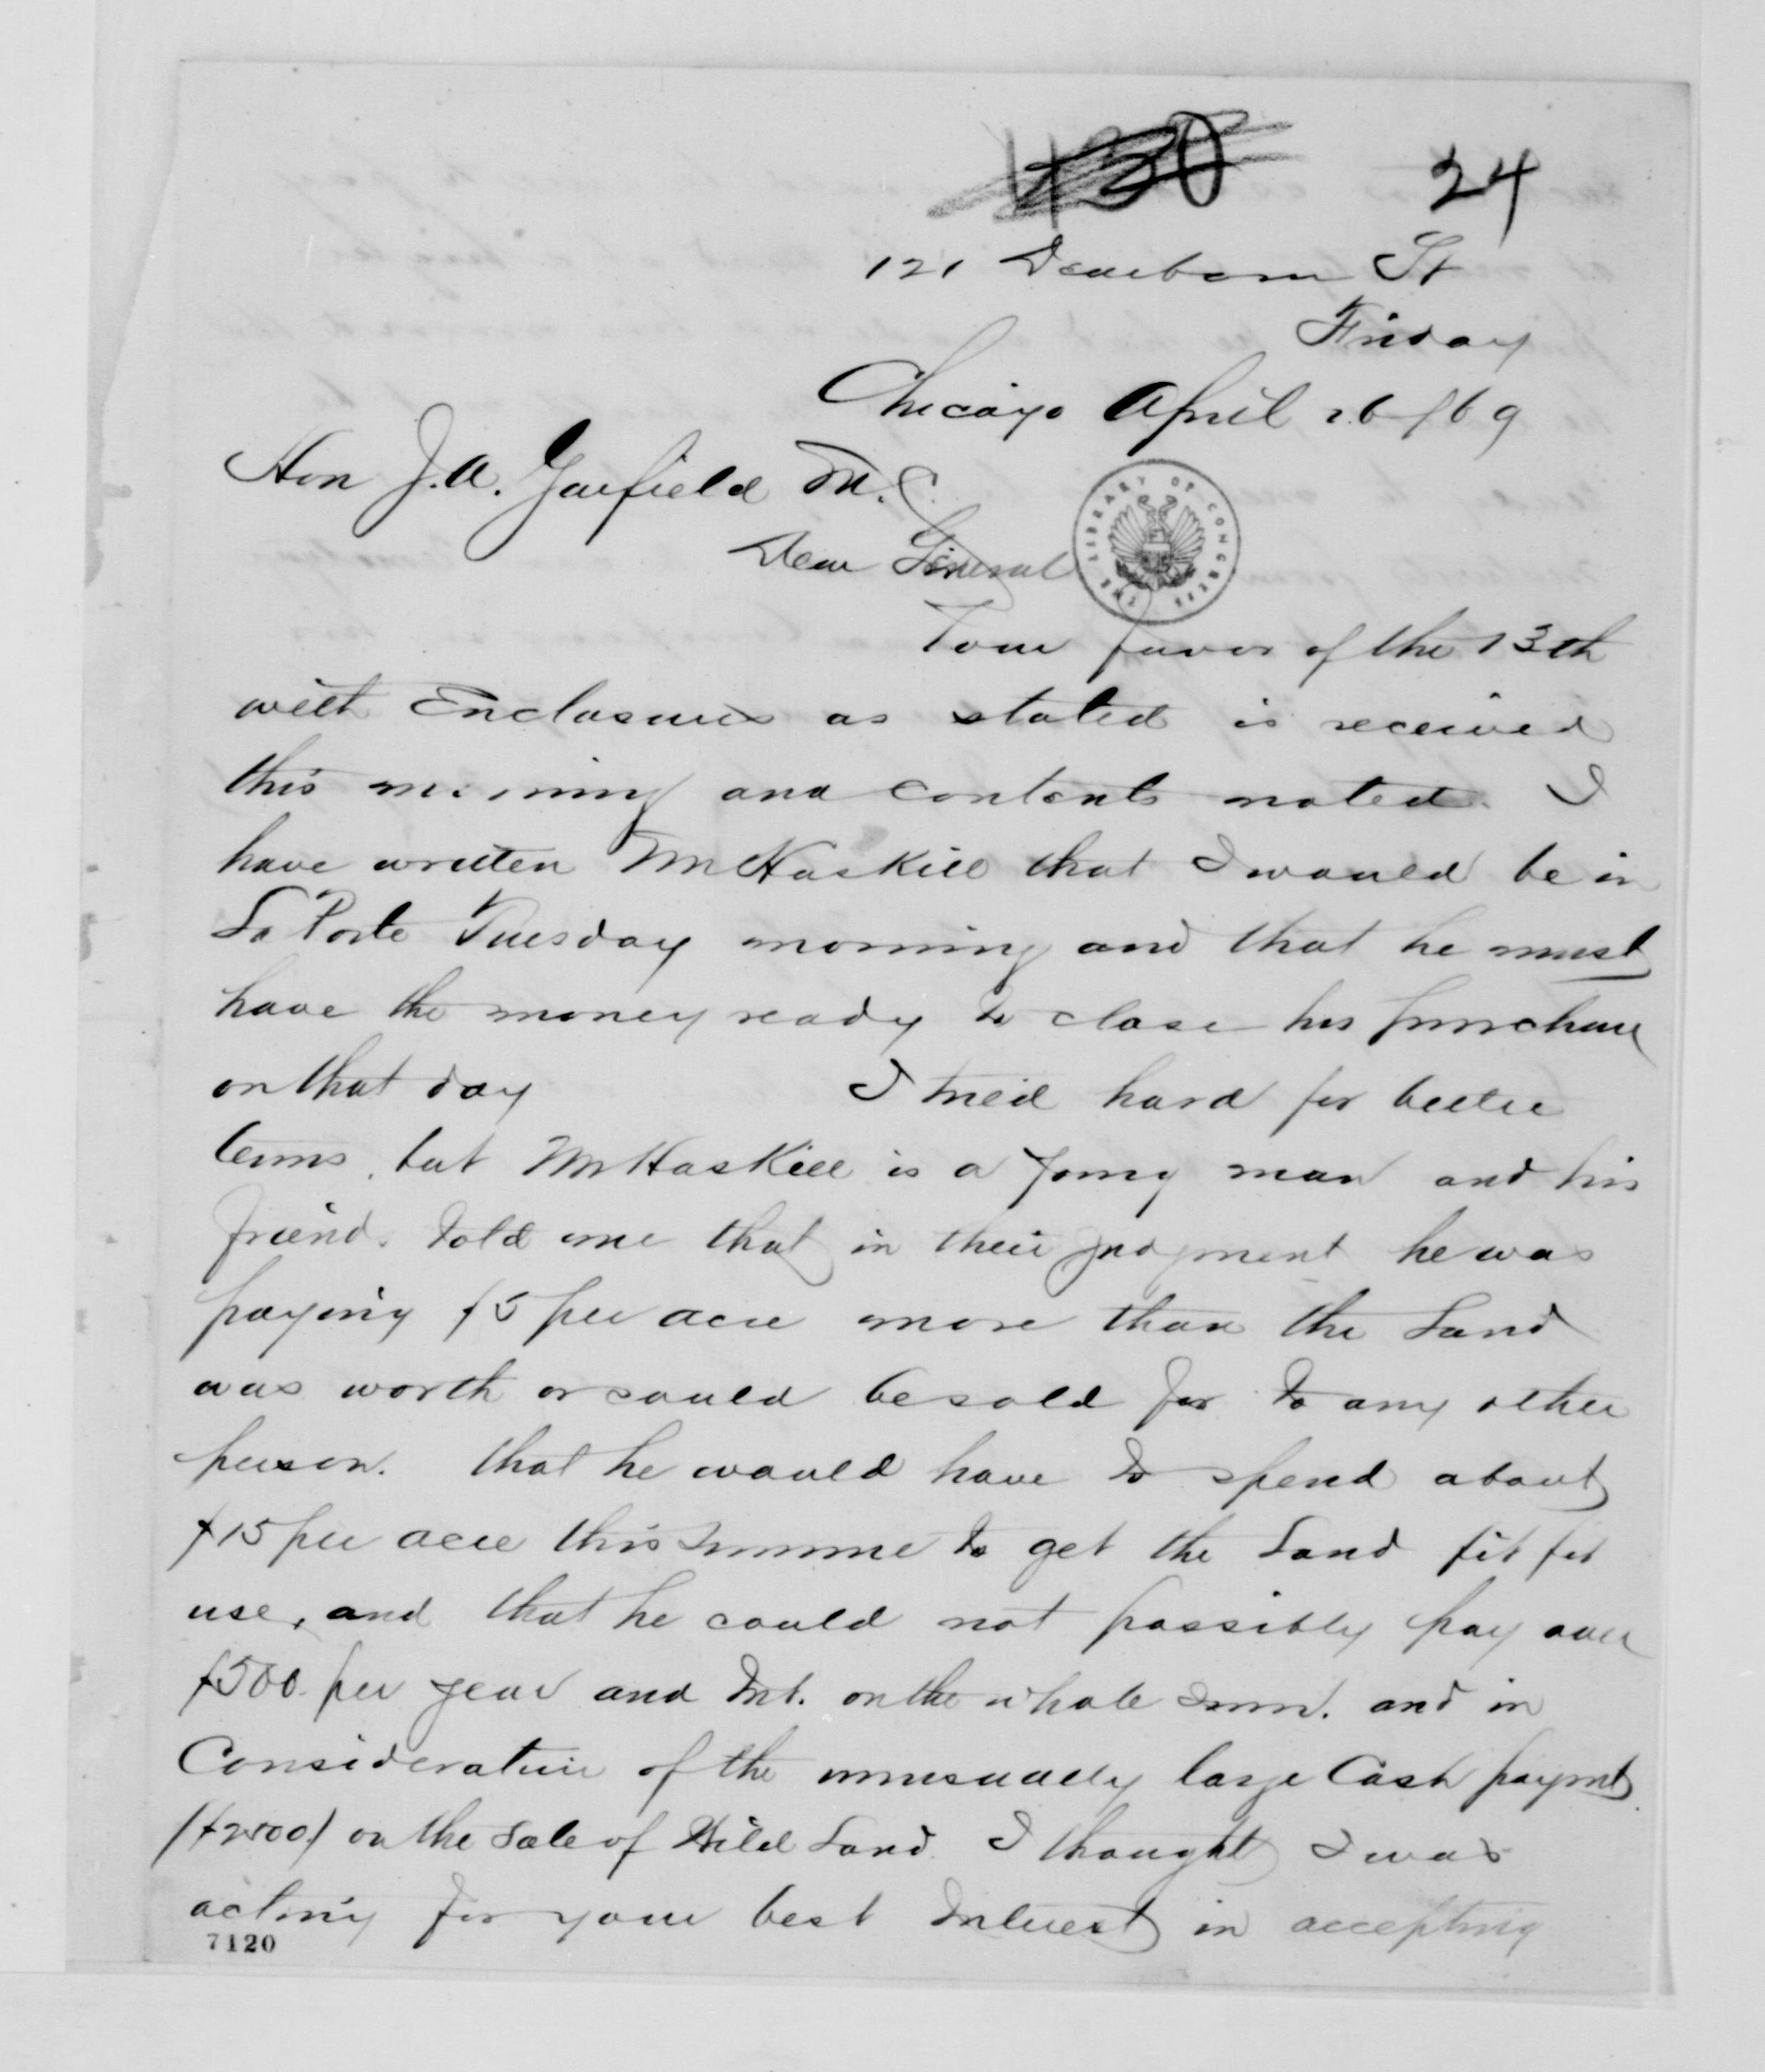 24
121 Dearborn St
Friday
Chicago April 26/69
Hon J.A. Garfield M.C.
Dear General
THE LIBRARY OF CONGRESS
Your favor of the 13th
with Enclosures as stated is received
this morning and contents noted. I
have written Mr Haskell that I would be in
La Porte Tuesday morning and that he must
have the money ready to close his purchase
on that day I tried hard for better
terms, but Mr Haskell is a young man and his
friends told me that in their judgment he was
paying $5 per acre more than the Land
was worth or could be sold for to any other
person. that he would have to spend about
$15 per acre this Summer to get the Land fit for
use, and that he could not possibly pay over
$500. per year and Int. on the whole sum. and in
Consideration of the unusually large Cash paymt
($2500) on the Sale of Wild Land. I thought I was
acting for your best Interest in accepting
7120